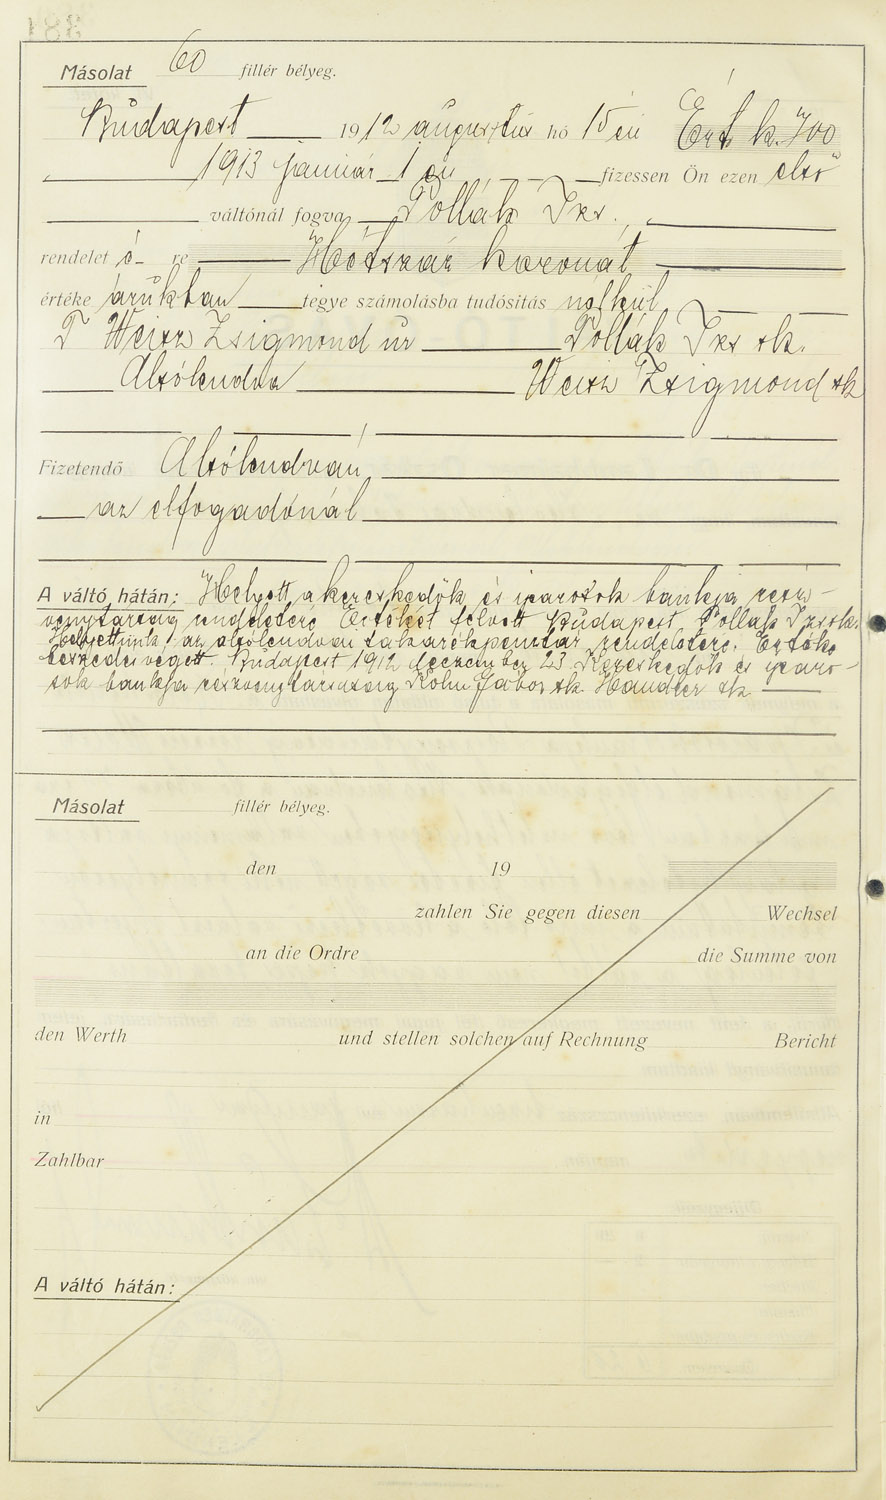 Másolat 60 fillér bélyeg.
Budapest 1912 augusztus hó 15én Ért k. 700
1913 január 1 én fizessen Ön ezen első
váltónál fogva Pollák Izs.
rendelet é- re Hétszáz koronát
értéke árúkban tegye számolásba tudósítás nélkül
T Weisz Zsigmond úr Pollák Izs sk.
Alsólendva Weisz Zsigmond sk
Fizetendő Alsólendván
az elfogadónál
A váltó hátán: Helyett a kereskedők és iparosok bankja rész-
vénytársaság rendeletére Értékét felvett Budapest Pollák Izs sk.
Helyettünk az alsólendvai takarékpénztár rendeletére. Értéke
beszedés végett. Budapest 1912 deczember 23. Kereskedők és iparo-
sok bankja részvénytársaság Kohn Jakos sk. Handler sk
Másolat fillér bélyeg.
den 19
zahlen Sie gegen diesen Wechsel
an die Ordre die Summe von
den Werth und stellen solchen auf Rechnung Bericht
in
Zahlbar
A váltó hátán: